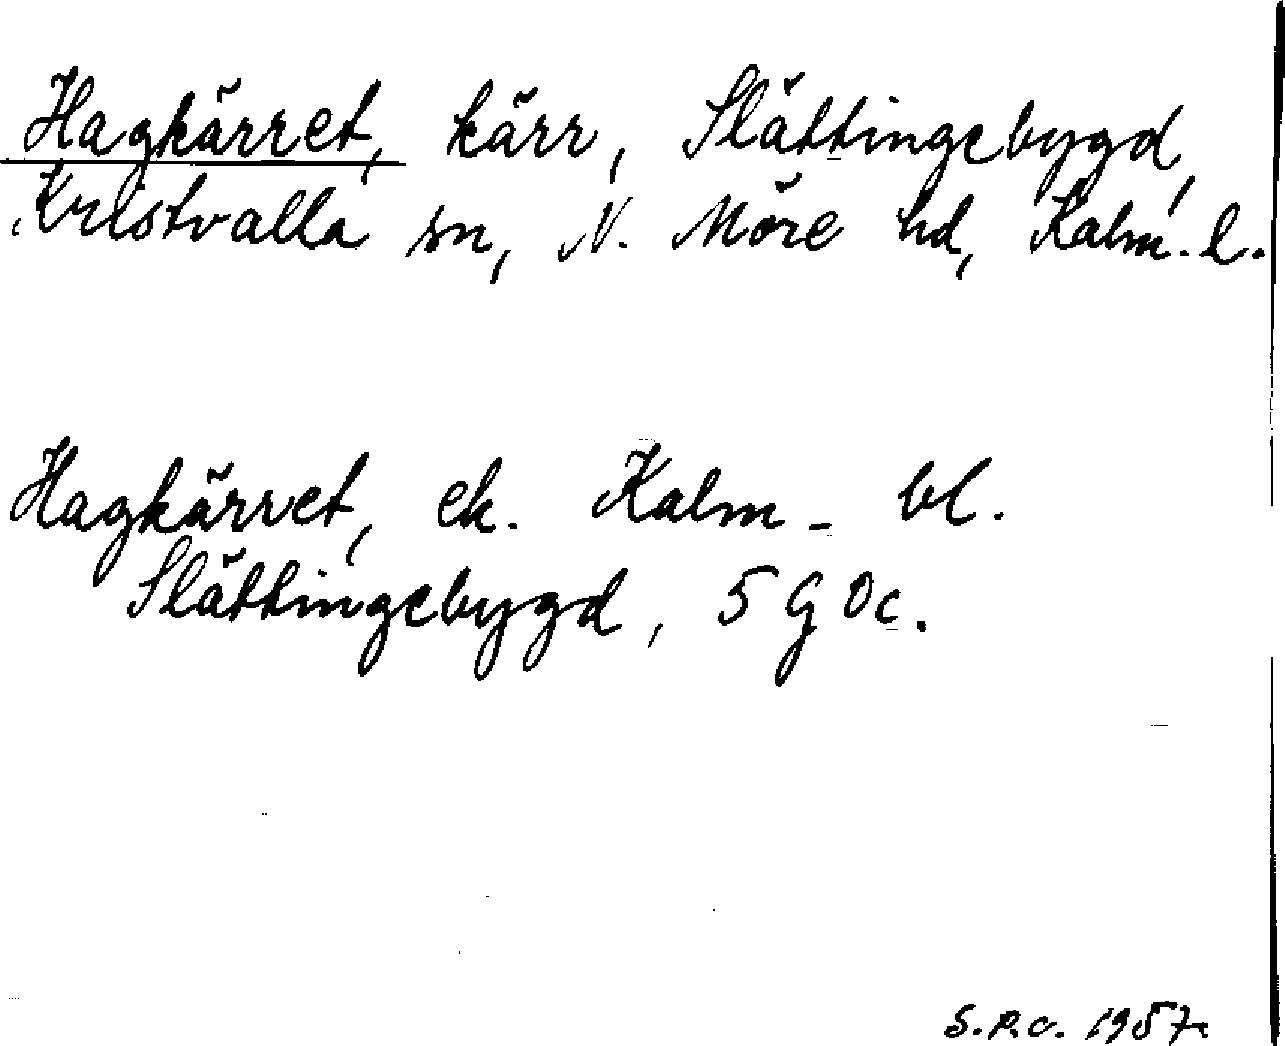 Hagkärret, kärr, Slättingebygd,
Kristvalla sn, N. Möre hd, Kalm. l.
Hagkärret, ek. Kalm - bl.
Slättingebygd, 5 G Oc.
S.P.O. 1957.